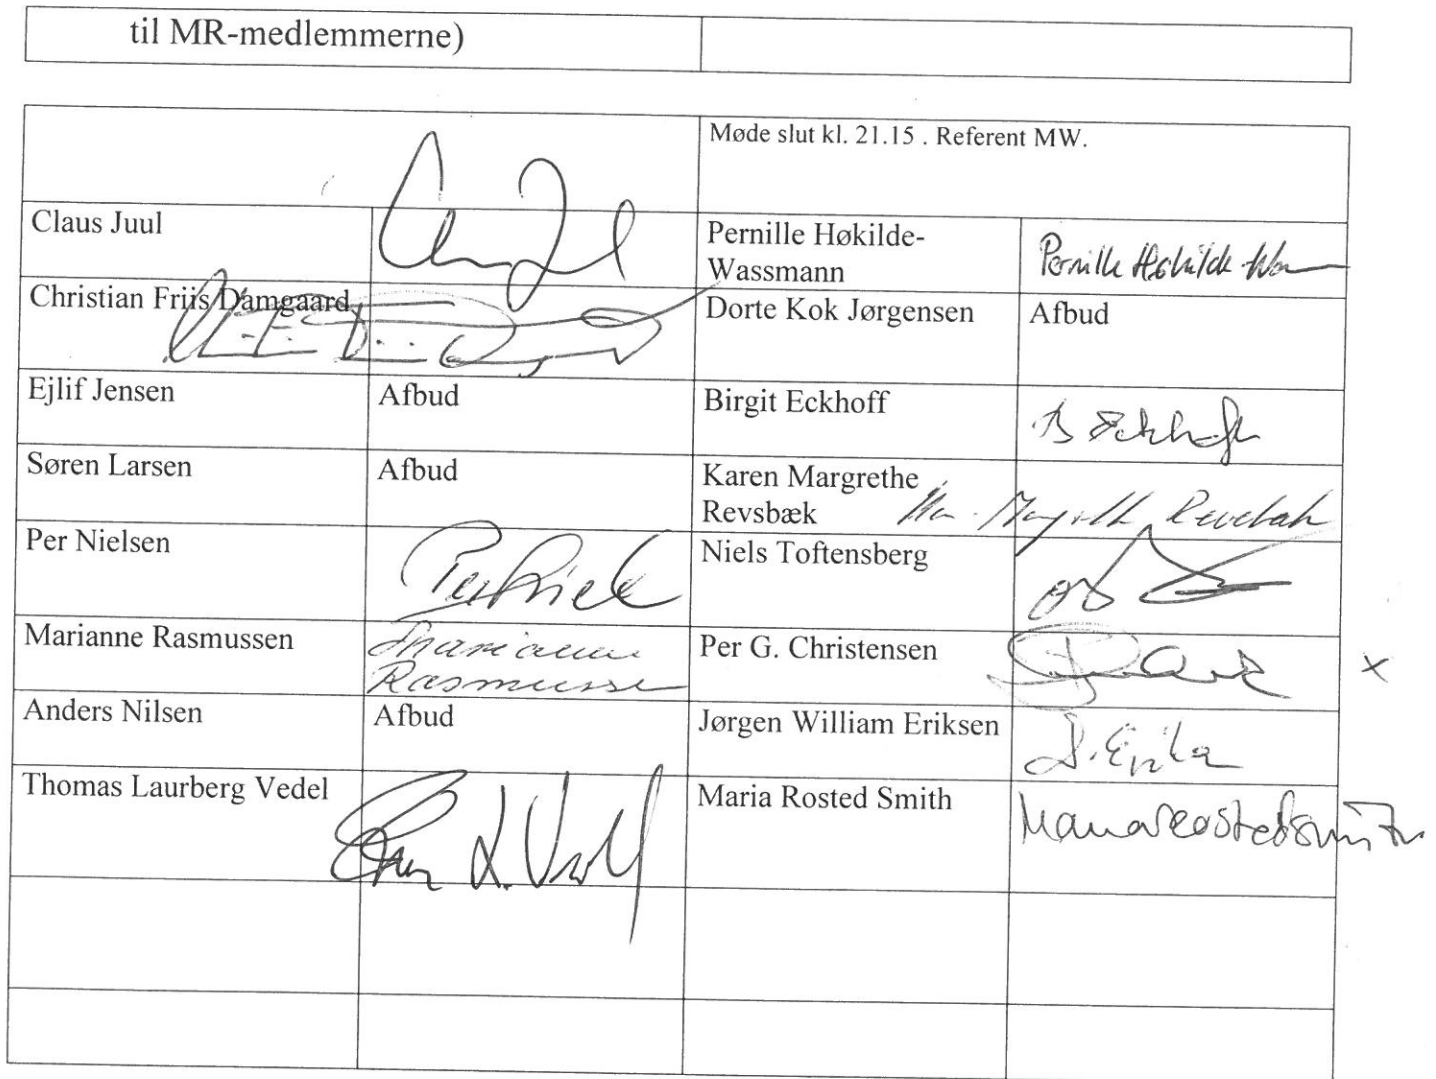 til MR-medlemmerne)
Møde slut kl. 21.15 . Referent MW.
Claus Juul
Pernille Høkilde-
Wassmann
Pernille Høkilde-
Christian Friis Damgaard
Dorte Kok Jørgensen
Afbud
Ejlif Jensen
Afbud
Birgit Eckhoff
B Eckhoff
Søren Larsen
Afbud
Karen Margrethe
Revsbæk
Per Nielsen
Niels Toftensberg
Marianne Rasmussen
Marianne
Rasmussen
Per G. Christensen
x
Anders Nilsen
Afbud
Jørgen William Eriksen
Thomas Laurberg Vedel
Maria Rosted Smith
Maria Rosted Smith